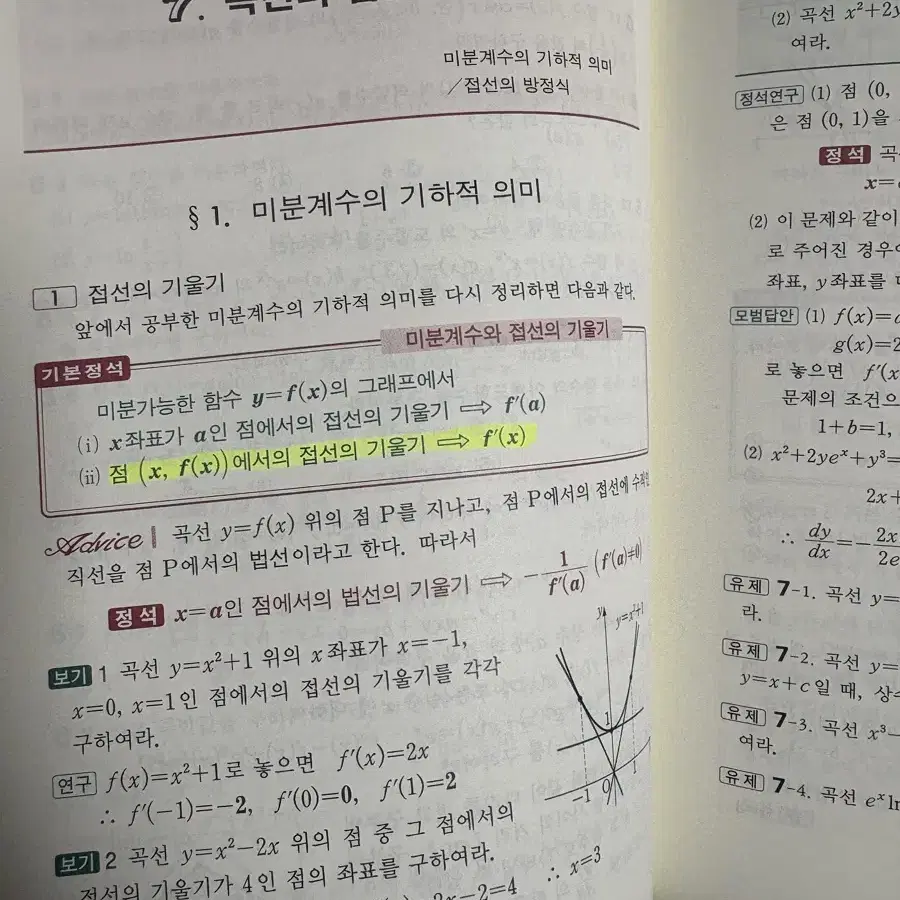 7.
미분계수의 기하적 의미
／접선의 방정식
§ 1. 미분계수의 기하적 의미
1 접선의 기울기
앞에서 공부한 미분계수의 기하적 의미를 다시 정리하면 다음과 같다.
기본정석 미분계수와 접선의 기울기
미분가능한 함수 y=f(x)의 그래프에서
(i) x좌표가 a인 점에서의 접선의 기울기 ⟹ f′(a)
(ii) 점 (x, f(x))에서의 접선의 기울기 ⟹ f′(x)
Advice | 곡선 y=f(x) 위의 점 P를 지나고, 점 P에서의 접선에 수직인
직선을 점 P에서의 법선이라고 한다. 따라서
정석 x=a인 점에서의 법선의 기울기 ⟹ −1/f′(a) (f′(a)≠0)
보기 1 곡선 y=x²+1 위의 x좌표가 x=−1,
x=0, x=1인 점에서의 접선의 기울기를 각각
구하여라.
연구 f(x)=x²+1로 놓으면 f′(x)=2x
∴ f′(−1)=−2, f′(0)=0, f′(1)=2
y
y=x²+1
1
−1 0 1
보기 2 곡선 y=x²−2x 위의 점 중 그 점에서의
접선의 기울기가 4인 점의 좌표를 구하여라.
2x−2=4 ∴ x=3
(2) 곡선 x²+2y
여라.
정석연구 (1) 점 (0,
은 점 (0, 1)을
정석 곡
x=
(2) 이 문제와 같이
로 주어진 경우
좌표, y좌표를
모범답안 (1) f(x)=
g(x)=2
로 놓으면 f′(x
문제의 조건으
1+b=1,
(2) x²+2yeˣ+y³=
2x+
∴ dy/dx=−2x/2e
유제 7-1. 곡선 y=
라.
유제 7-2. 곡선 y=
y=x+c일 때, 상
유제 7-3. 곡선 x³−
여라.
유제 7-4. 곡선 eˣln